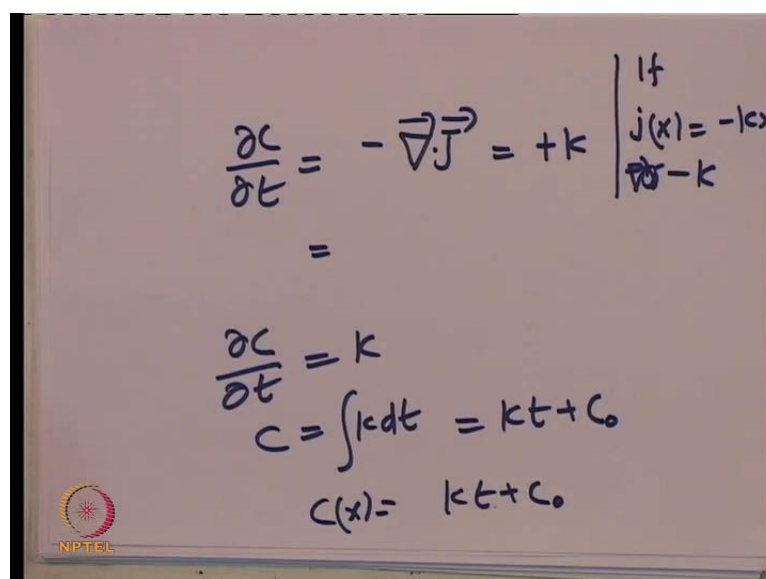 ∂C/∂t = - ∇⃗·J⃗ = +k
If
j(x) = -kx
- k
=
∂C/∂t = k
C = ∫k dt = kt + C₀
C(x) = kt + C₀
NPTEL